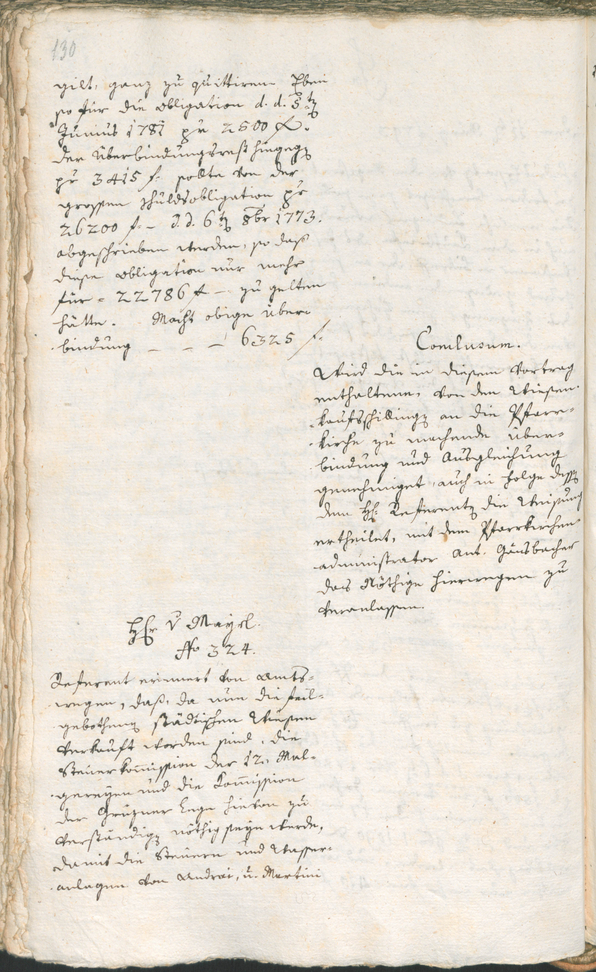 130
gilt, ganz zu quittiren. Eben
so für die Obligation d. d. 5t
Junius 1781 pr 2500 f.
Der Überbindungsrest hingeg
pr 3415 f. sollte von der
grossen Schuldobligation pr
26200 f. – d. d. 6t 8br 1773.
abgeschrieben werden, so daß
diese Obligation nur mehr
für – 22786 f – zu gelten
hätte. Macht obige Über-
bindung – – – 6325 f.
Conclusum.
Wird die in diesem Vortrag
enthaltene, von den Wiesen-
kaufschilling an die Pfarr-
kirche zu machende Über-
bindung und Ausgleichung
genehmiget, auch in Folge dess
dem H. Referent die Weisung
ertheilet, mit dem Pfarrkirchen-
administrator Ant. Gänsbacher
das Nöthige hierwegen zu
veranlassen.
H v Mayrl.
No 324.
Referent erinnert von Amts-
wegen, daß, da nun die feil-
gebothenen städtischen Wiesen
verkauft worden sind, die
Steuerkomission der 12. Mal-
gereyen und die Komission
der Gruzner Lege hievon zu
verständig nöthig seyn werde,
damit die Steuern und Wasser-
anlagen von Andrai, u. Martini